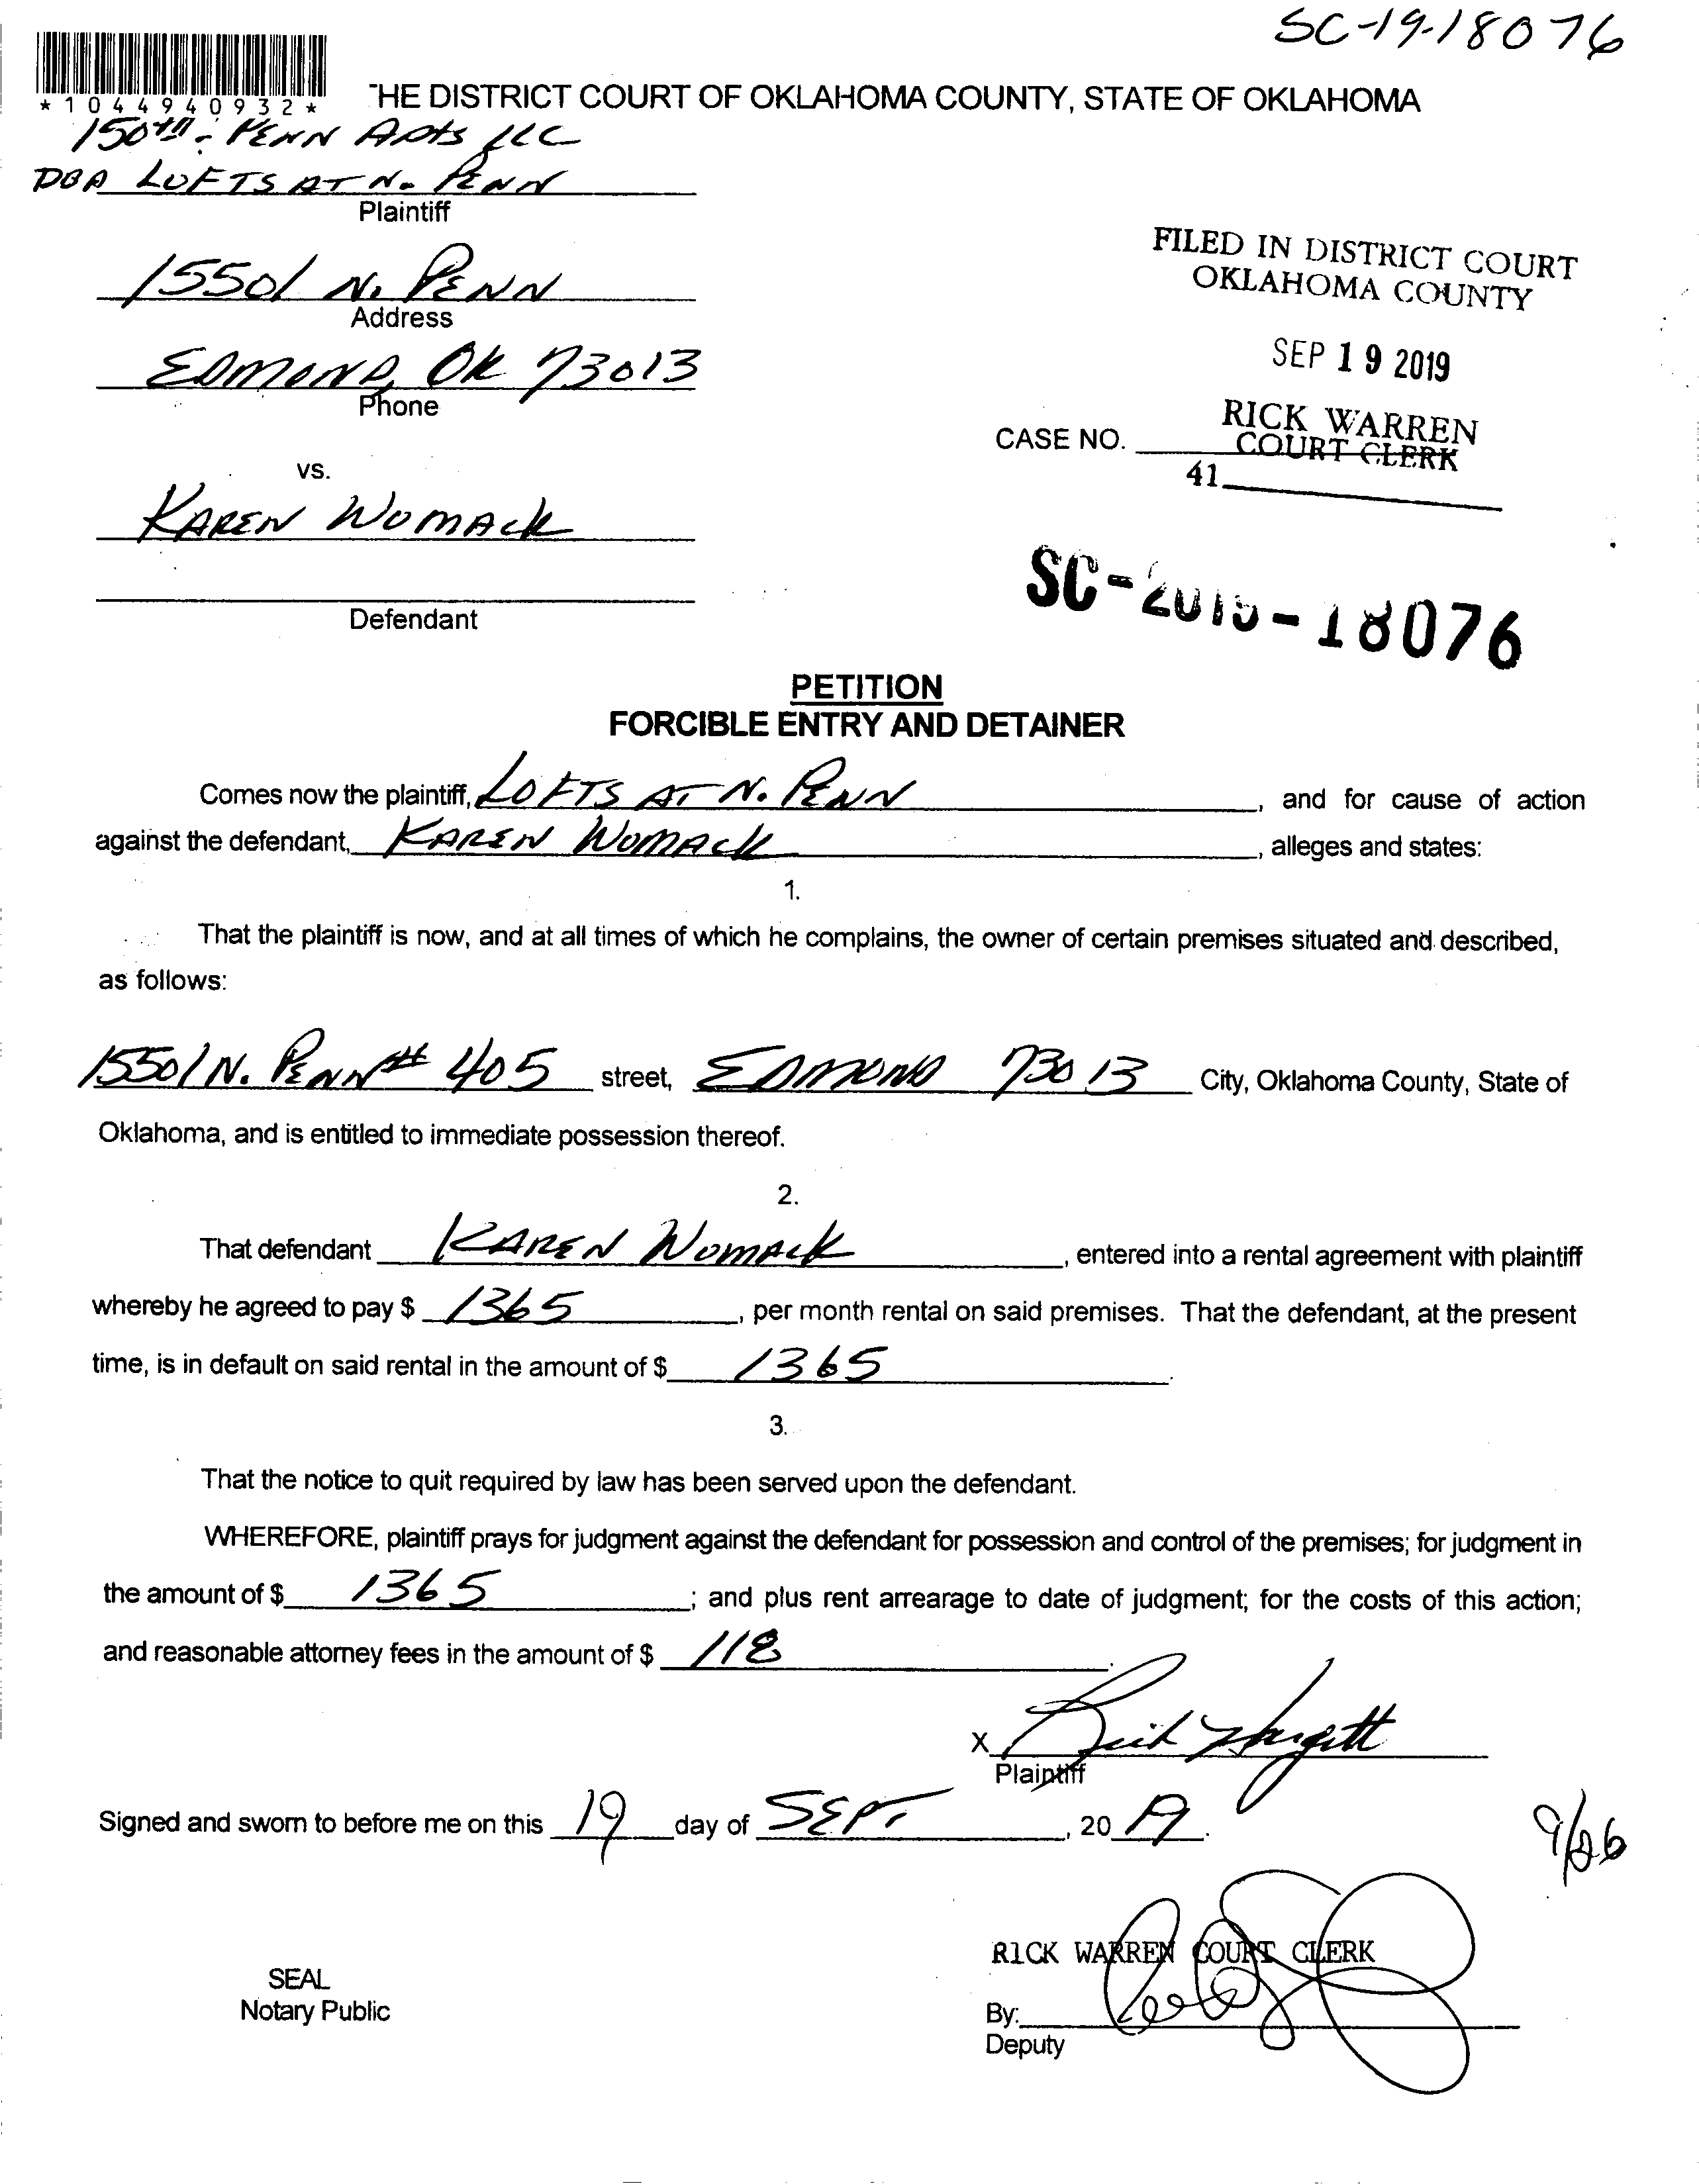 SC-19-18076
*1044940932*
THE DISTRICT COURT OF OKLAHOMA COUNTY, STATE OF OKLAHOMA
150th - PENN Apts LLC
DBA LOFTS AT N. PENN
Plaintiff
15501 N. PENN
Address
EDMOND, OK 73013
Phone
FILED IN DISTRICT COURT
OKLAHOMA COUNTY
SEP 19 2019
RICK WARREN
COURT CLERK
CASE NO.
41
vs.
KAREN WOMACK
Defendant
SC-2019-18076
PETITION
FORCIBLE ENTRY AND DETAINER
Comes now the plaintiff, LOFTS AT N. PENN, and for cause of action
against the defendant, KAREN WOMACK, alleges and states:
1.
That the plaintiff is now, and at all times of which he complains, the owner of certain premises situated and described,
as follows:
15501 N. PENN # 405 street, EDMOND 73013 City, Oklahoma County, State of
Oklahoma, and is entitled to immediate possession thereof.
2.
That defendant KAREN WOMACK, entered into a rental agreement with plaintiff
whereby he agreed to pay $ 1365, per month rental on said premises. That the defendant, at the present
time, is in default on said rental in the amount of $ 1365.
3.
That the notice to quit required by law has been served upon the defendant.
WHEREFORE, plaintiff prays for judgment against the defendant for possession and control of the premises; for judgment in
the amount of $ 1365; and plus rent arrearage to date of judgment; for the costs of this action;
and reasonable attorney fees in the amount of $ 118.
X
Plaintiff
Signed and sworn to before me on this 19 day of SEPT., 20 19.
9/26
RICK WARREN COURT CLERK
SEAL
Notary Public
By:
Deputy